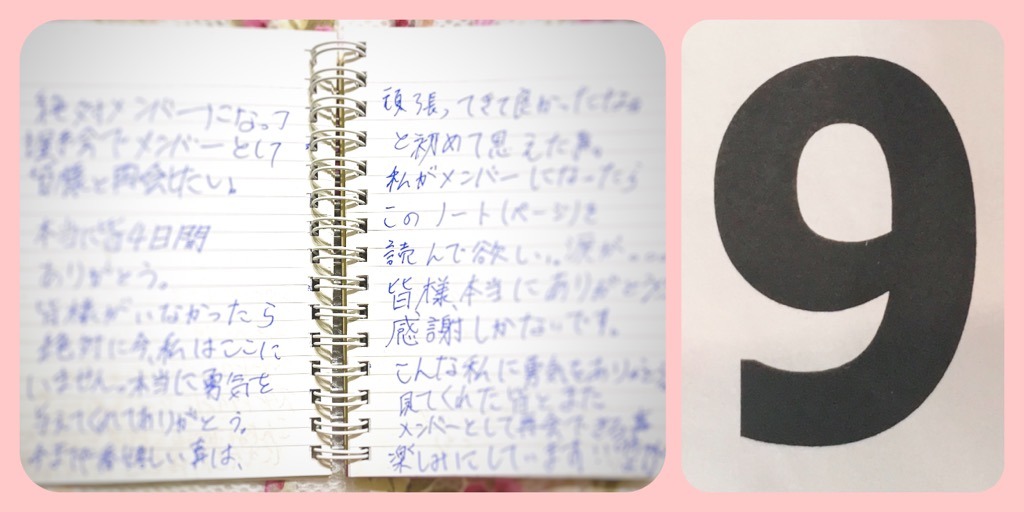 絶対メンバーになって
握手会でメンバーとして
皆様と再会したい。
本当に皆4日間
ありがとう。
皆様がいなかったら
絶対に今、私はここに
いません。本当に勇気を
与えてくれてありがとう。
嬉しい事は、
頑張ってきて良かったな。
と初めて思えた事。
私がメンバーになったら
このノート(ページ)を
読んで欲しい。涙が....
皆様、本当にありがとう
感謝しかないです。
こんな私に勇気をありがとう
見てくれた皆とまた
メンバーとして再会できる事
楽しみにしています
9